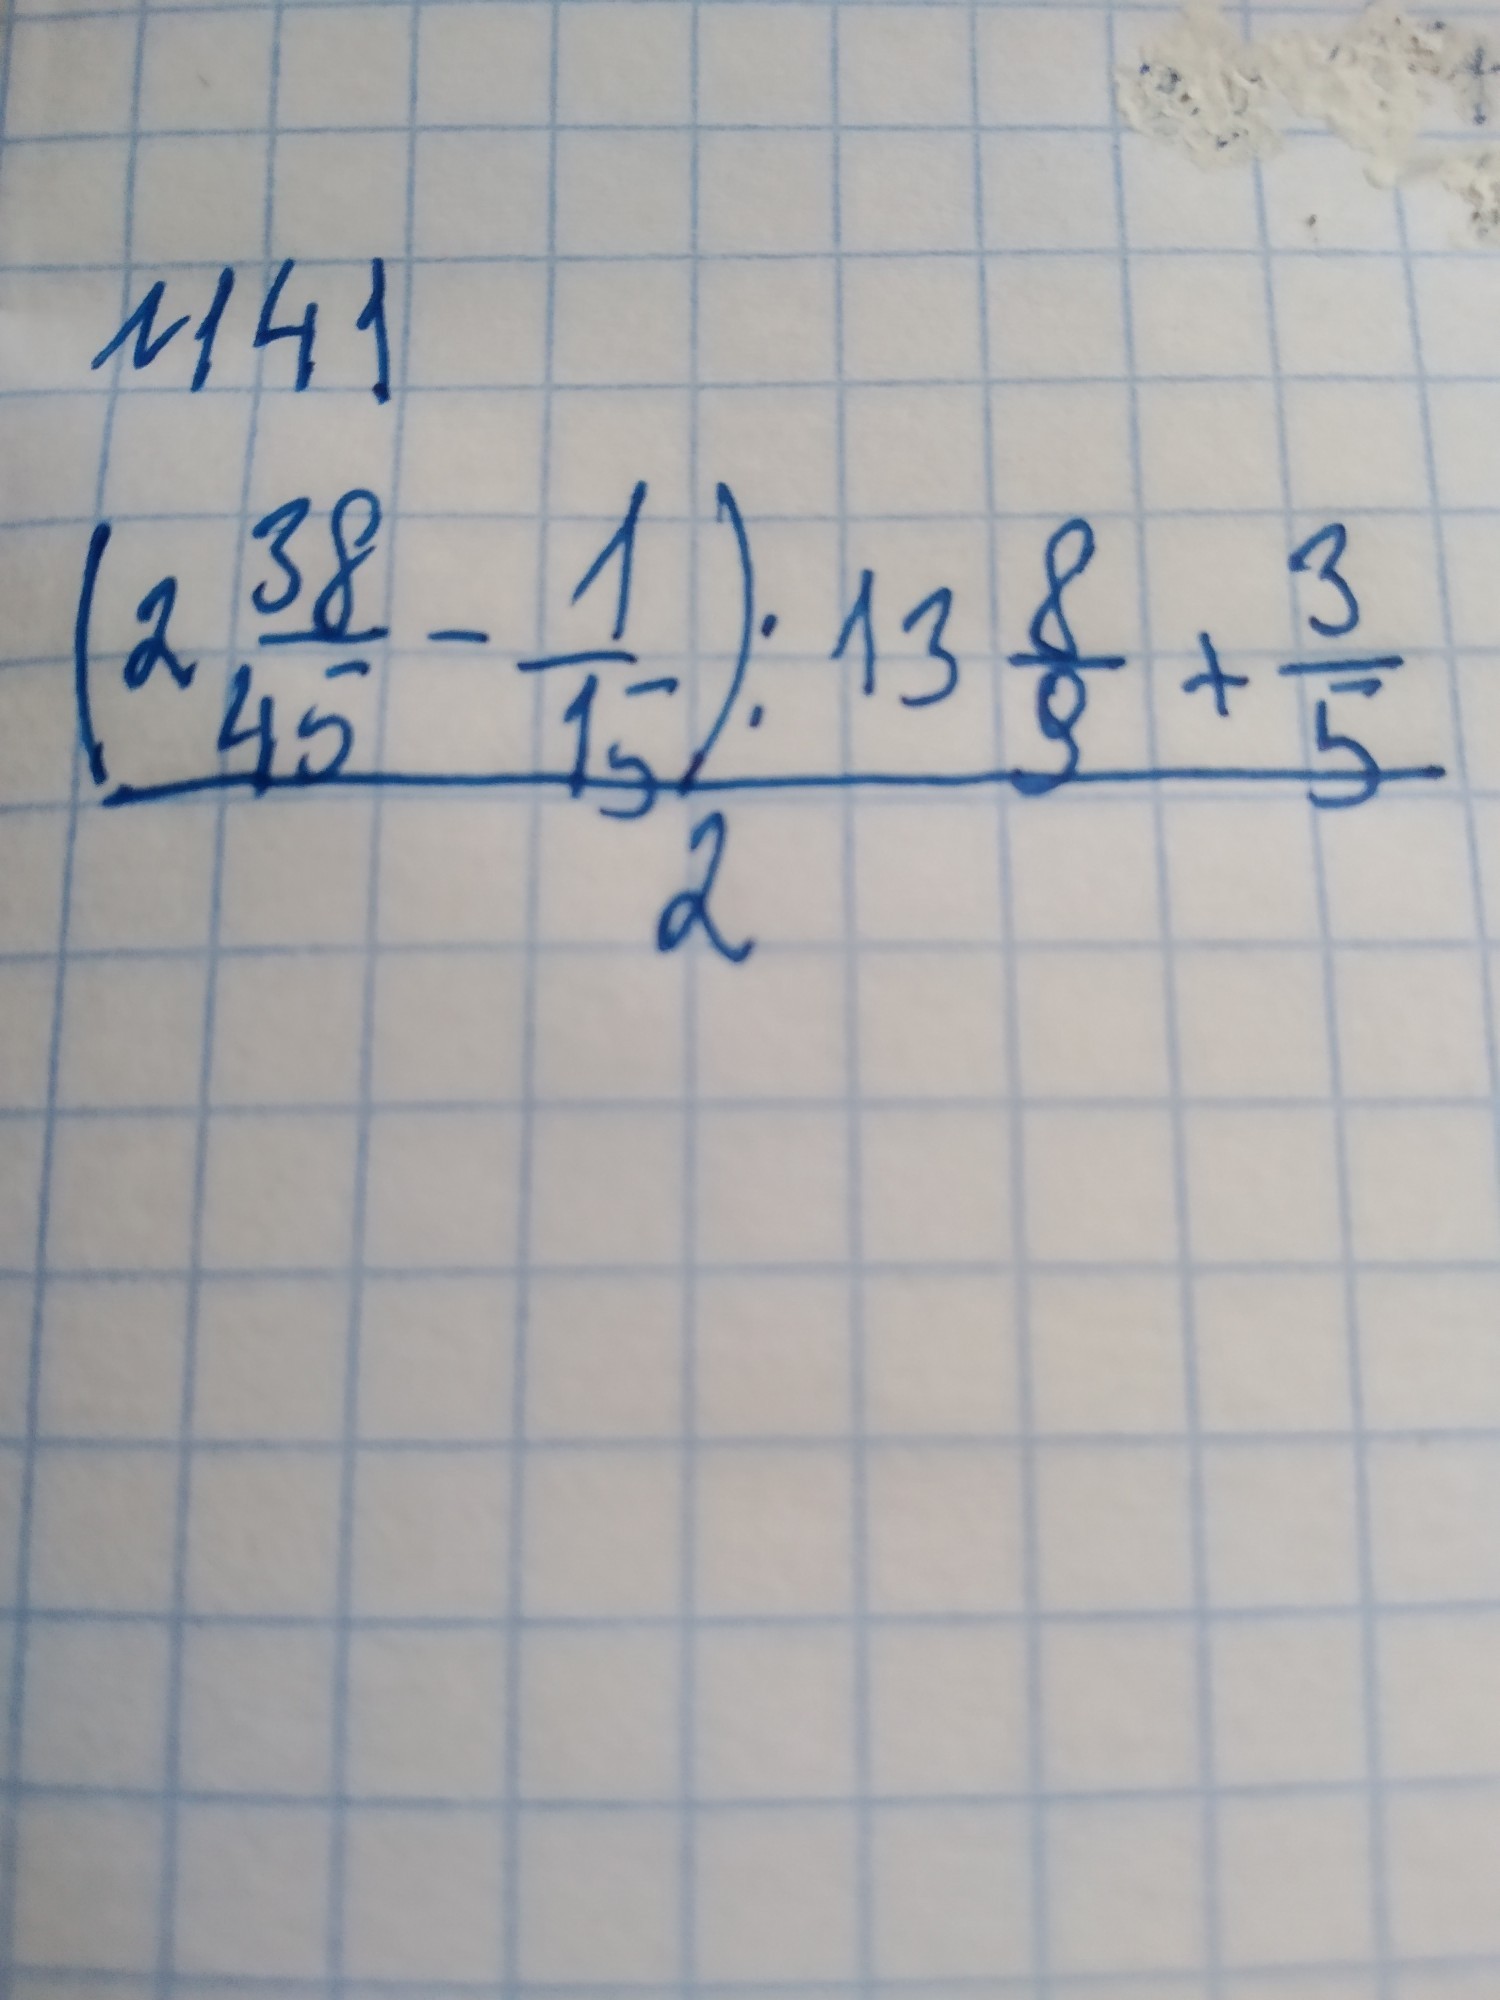 N141
(2 38/45 - 1/15) : 13 8/9 + 3/5
2